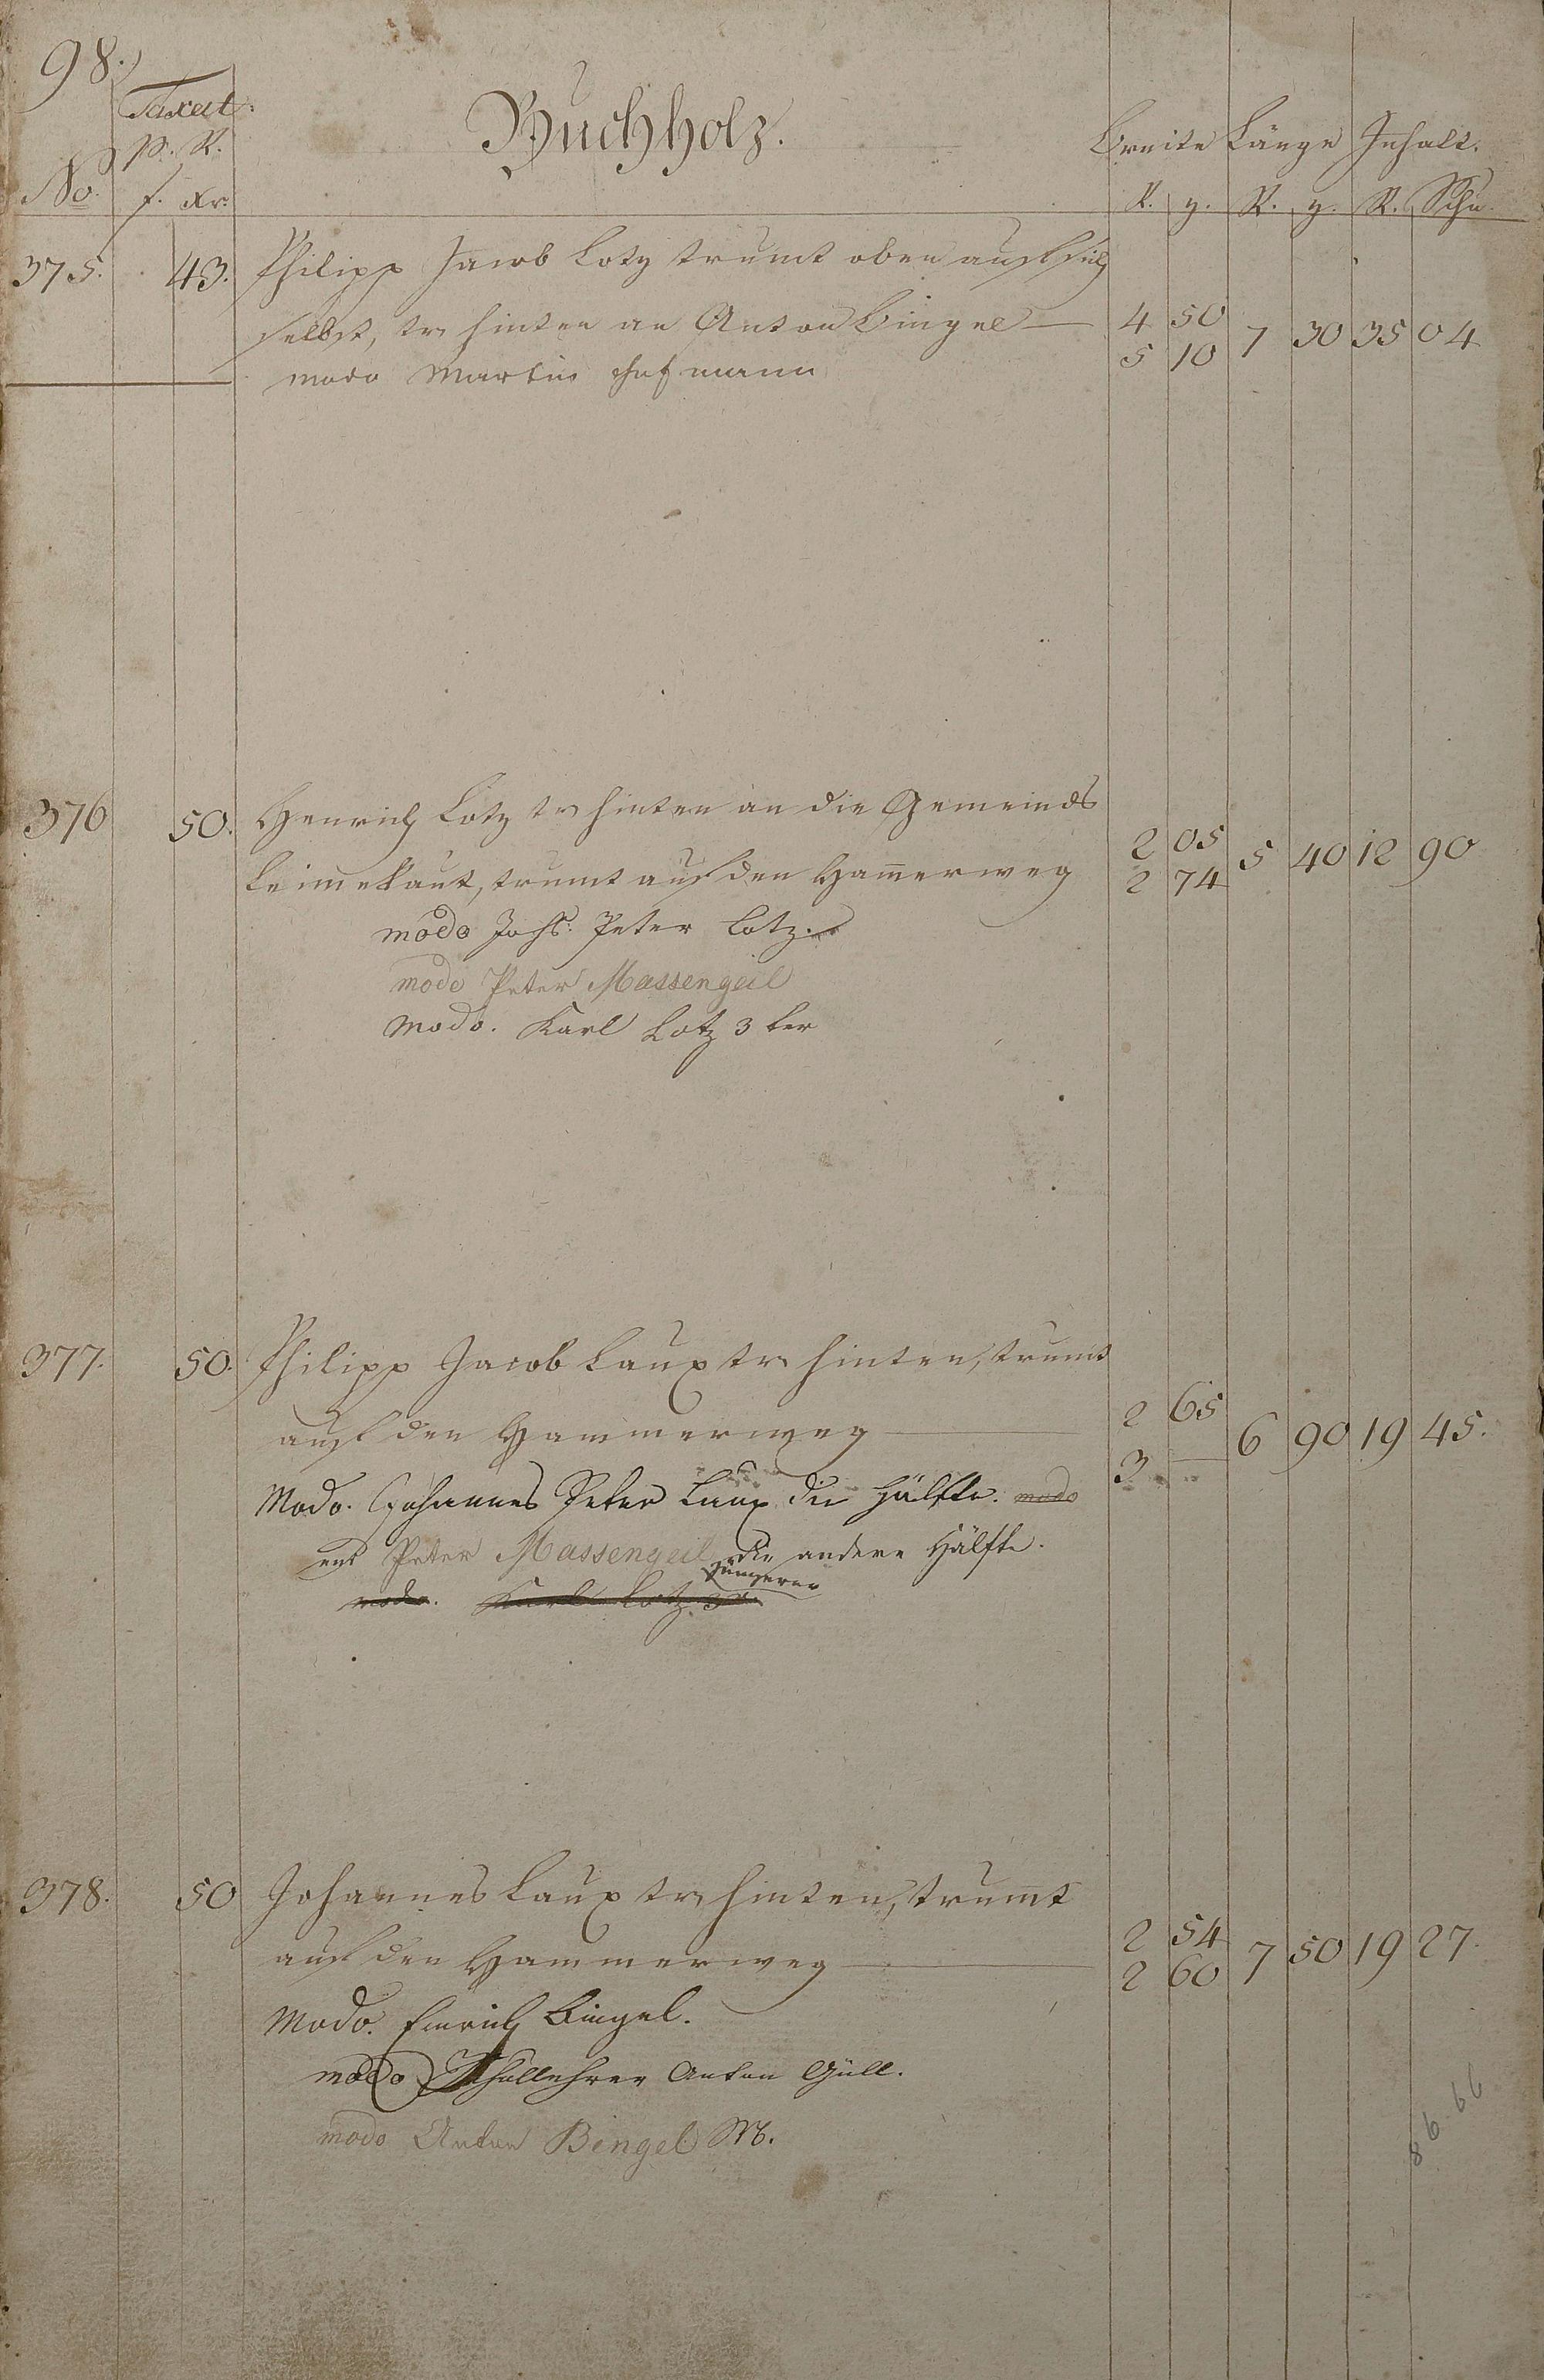 98.
Taxat:
p. R.
No. f. xr.
Buchholz.
Breite Länge Inhalt.
R. z. R. z. R. Schu.
375. 43. Philipp Jacob Lotz trumt oben auf sich
selbst, tr hinten an Anton Bingel — 4 50 7 30 35 04
5 10
modo Martin Hofmann
376 50. Henrich Lotz tr hinten an die Gemeinds
Leimekaut, trumt auf den Ham̄erweg 2 05 5 40 12 90
2 74
modo Johs: Peter Lotz.
modo Peter Massengeil
Modo. Karl Lotz 3 ter
377. 50. Philipp Jacob Laux tr hinten, trumt
auf den Hammerweg 2 65 6 90 19 45.
3 —
Modo. Johannes Peter Laux die Hälfte. modo
Peter Massengeil die andere Hälfte.
jüngerer
modo. Karl Lotz 3
378. 50 Johannes Laux tr hinten, trumt
auf den Hammerweg 2 54 7 50 19 27.
2 60
Modo. Emrich Bingel.
modo Schullehrer Anton Güll.
modo Anton Bingel M.
86 66